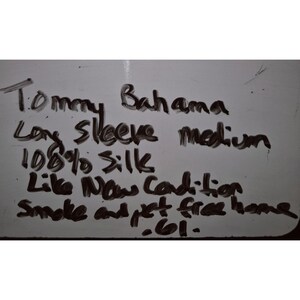 Tommy Bahama
Long Sleeve medium
100% Silk
Like New Condition
Smoke and pet free home
.61.